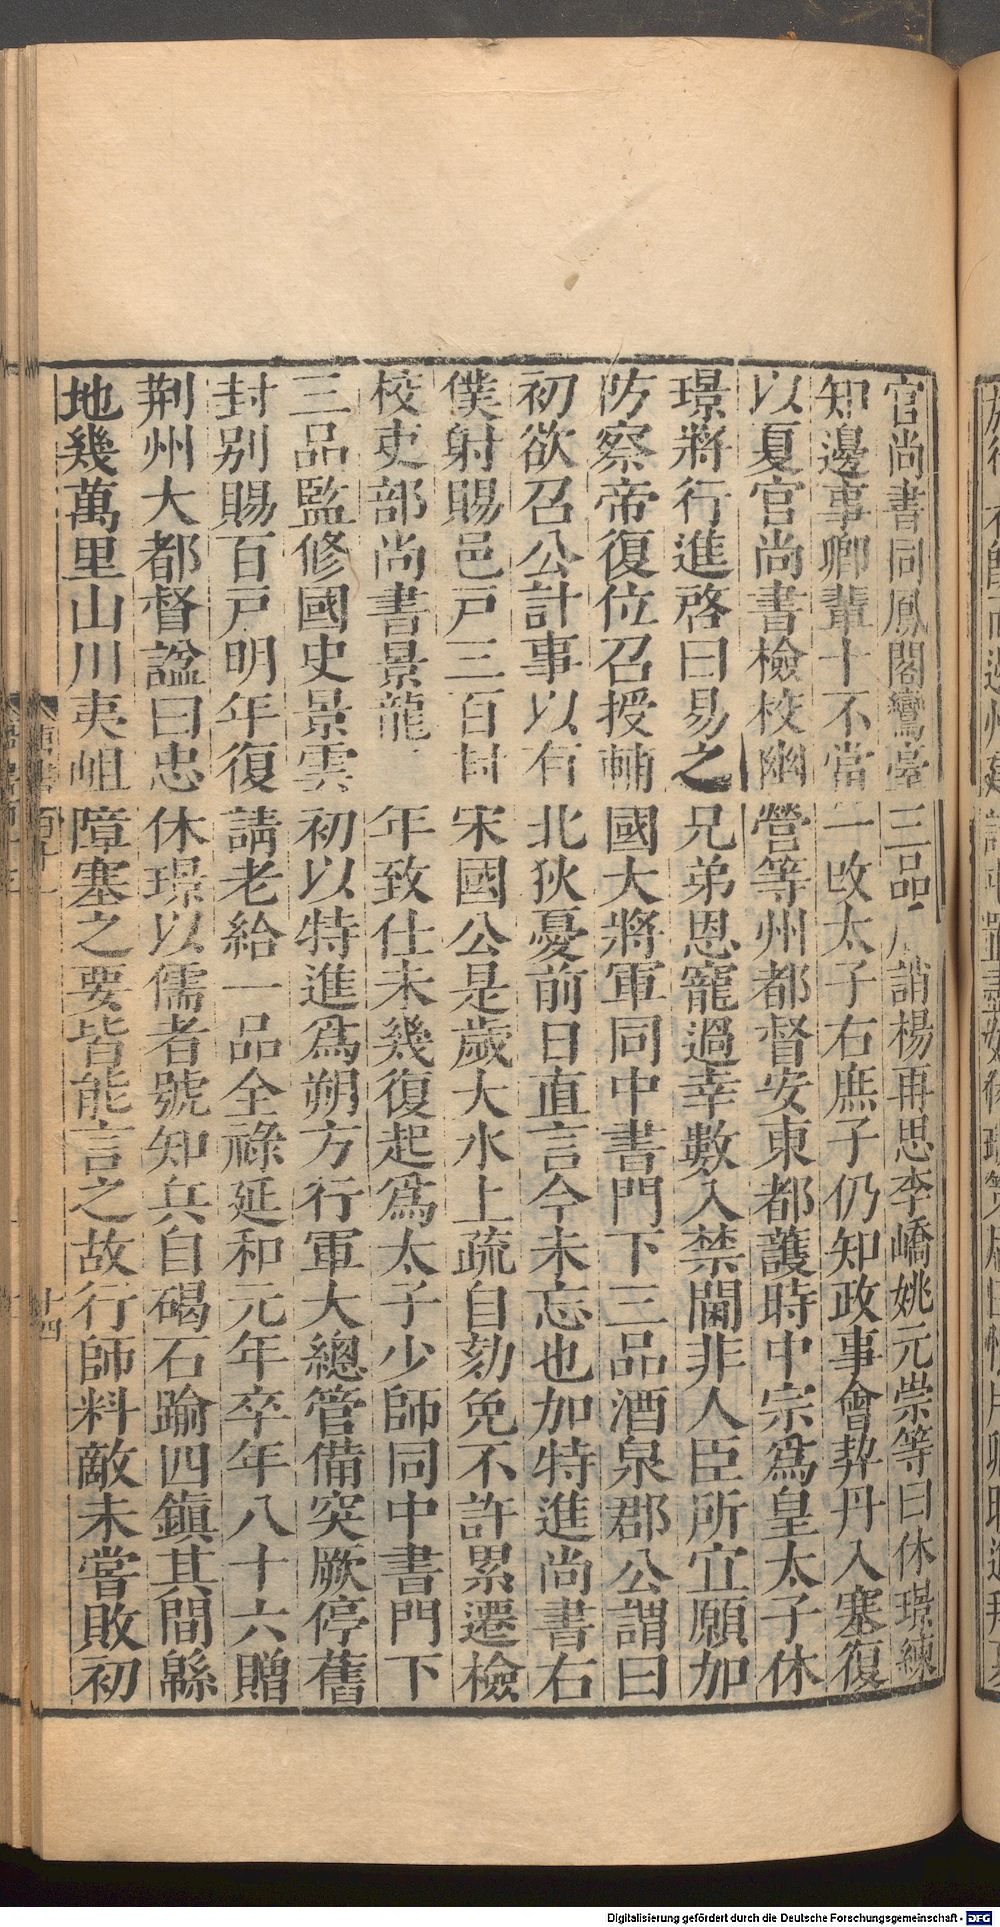 官尚書同鳳閣鸞臺三品后誚楊再思李嶠姚元崇等曰休璟練
知邊事卿輩十不當一改太子右庶子仍知政事會契丹入塞復
以夏官尚書檢校幽營等州都督安東都護時中宗爲皇太子休
璟將行進啓曰易之兄弟恩寵過幸數入禁闥非人臣所宜願加
防察帝復位召授輔國大將軍同中書門下三品酒泉郡公謂曰
初欲召公計事以有北狄憂前日直言今未忘也加特進尚書右
僕射賜邑戸三百封宋國公是歲大水上疏自劾免不許累遷檢
校吏部尚書景龍二年致仕未幾復起爲太子少師同中書門下
三品監修國史景雲初以特進爲朔方行軍大總管備突厥停舊
封别賜百戸明年復請老給一品全祿延和元年卒年八十六贈
荆州大都督諡曰忠休璟以儒者號知兵自碣石踰四鎮其間緜
地幾萬里山川夷岨障塞之要皆能言之故行師料敵未嘗敗初
十四
Digitalisierung gefördert durch die Deutsche Forschungsgemeinschaft - DFG